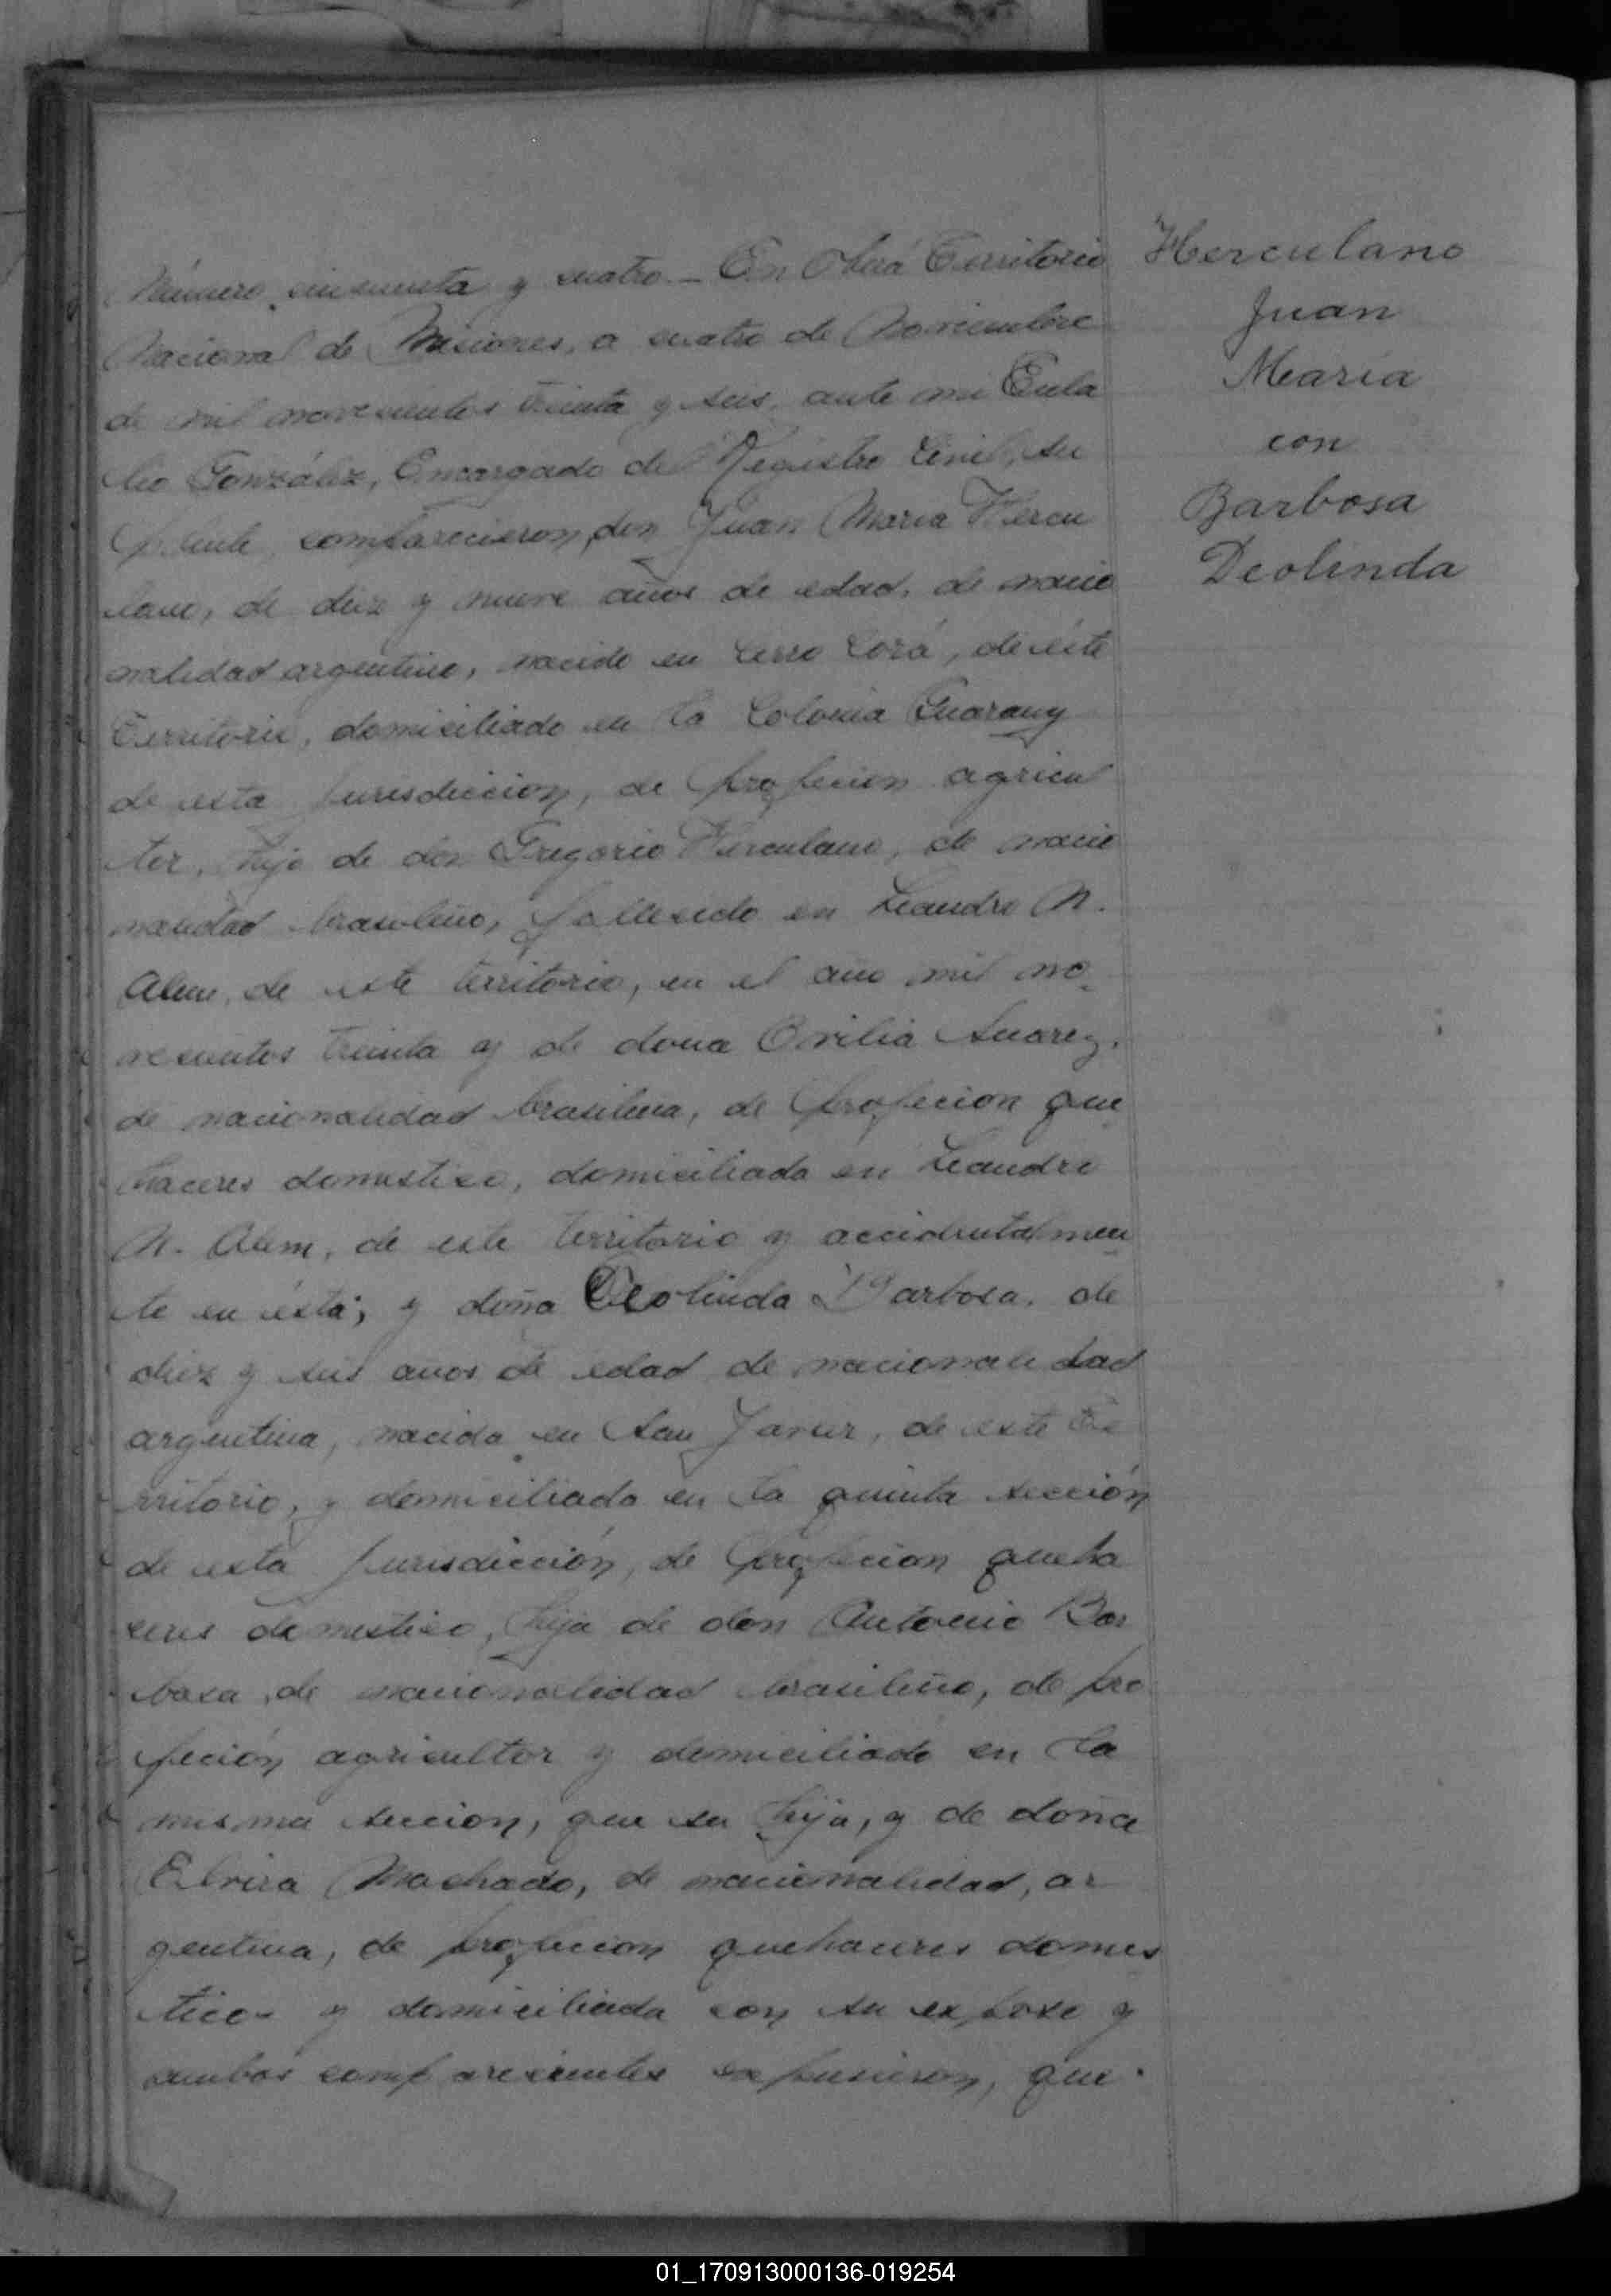 Número cincuenta y cuatro.- En Oberá Territorio
Nacional de Misiones, a cuatro de Noviembre
de mil novecientos treinta y seis, ante mi Eula
lio González, Encargado del Registro Civil, su
plente, comparecieron, don Juan María Hercu
lano, de diez y nueve años de edad, de nacio
nalidad argentino, nacido en Cerro Corá, de éste
Territorio, domiciliado en la Colonia Guarany
de esta jurisdiccion, de profecion agricul
tor, hijo de don Gregorio Herculano, de nacio
nalidad brasileño, fallecido en Leandro N.
Alem, de este territorio, en el año mil no
vecientos treinta y de doña Orilia Suarez,
de nacionalidad brasilena, de profecion que
haceres domestico, domiciliada en Leandro
N. Alem, de este territorio y accidentalmen
te en ésta; y doña Deolinda Barbosa, de
diez y seis anos de edad de nacionalidad
argentina, nacida en San Javier, de este Te
rritorio, y domiciliada en la quinta sección
de esta jurisdicción, de profecion queha
ceres domestico, hija de don Antonio Bar
bosa, de nacionalidad brasileño, de pro
feción agricultor y domiciliado en la
misma seccion, que su hija, y de doña
Elvira Machado, de nacionalidad, ar
gentina, de profecion quehaceres domes
ticos y domiciliada con su esposo y
ambos comparecientes expusieron, que
Herculano
Juan
María
con
Barbosa
Deolinda
01_170913000136-019254